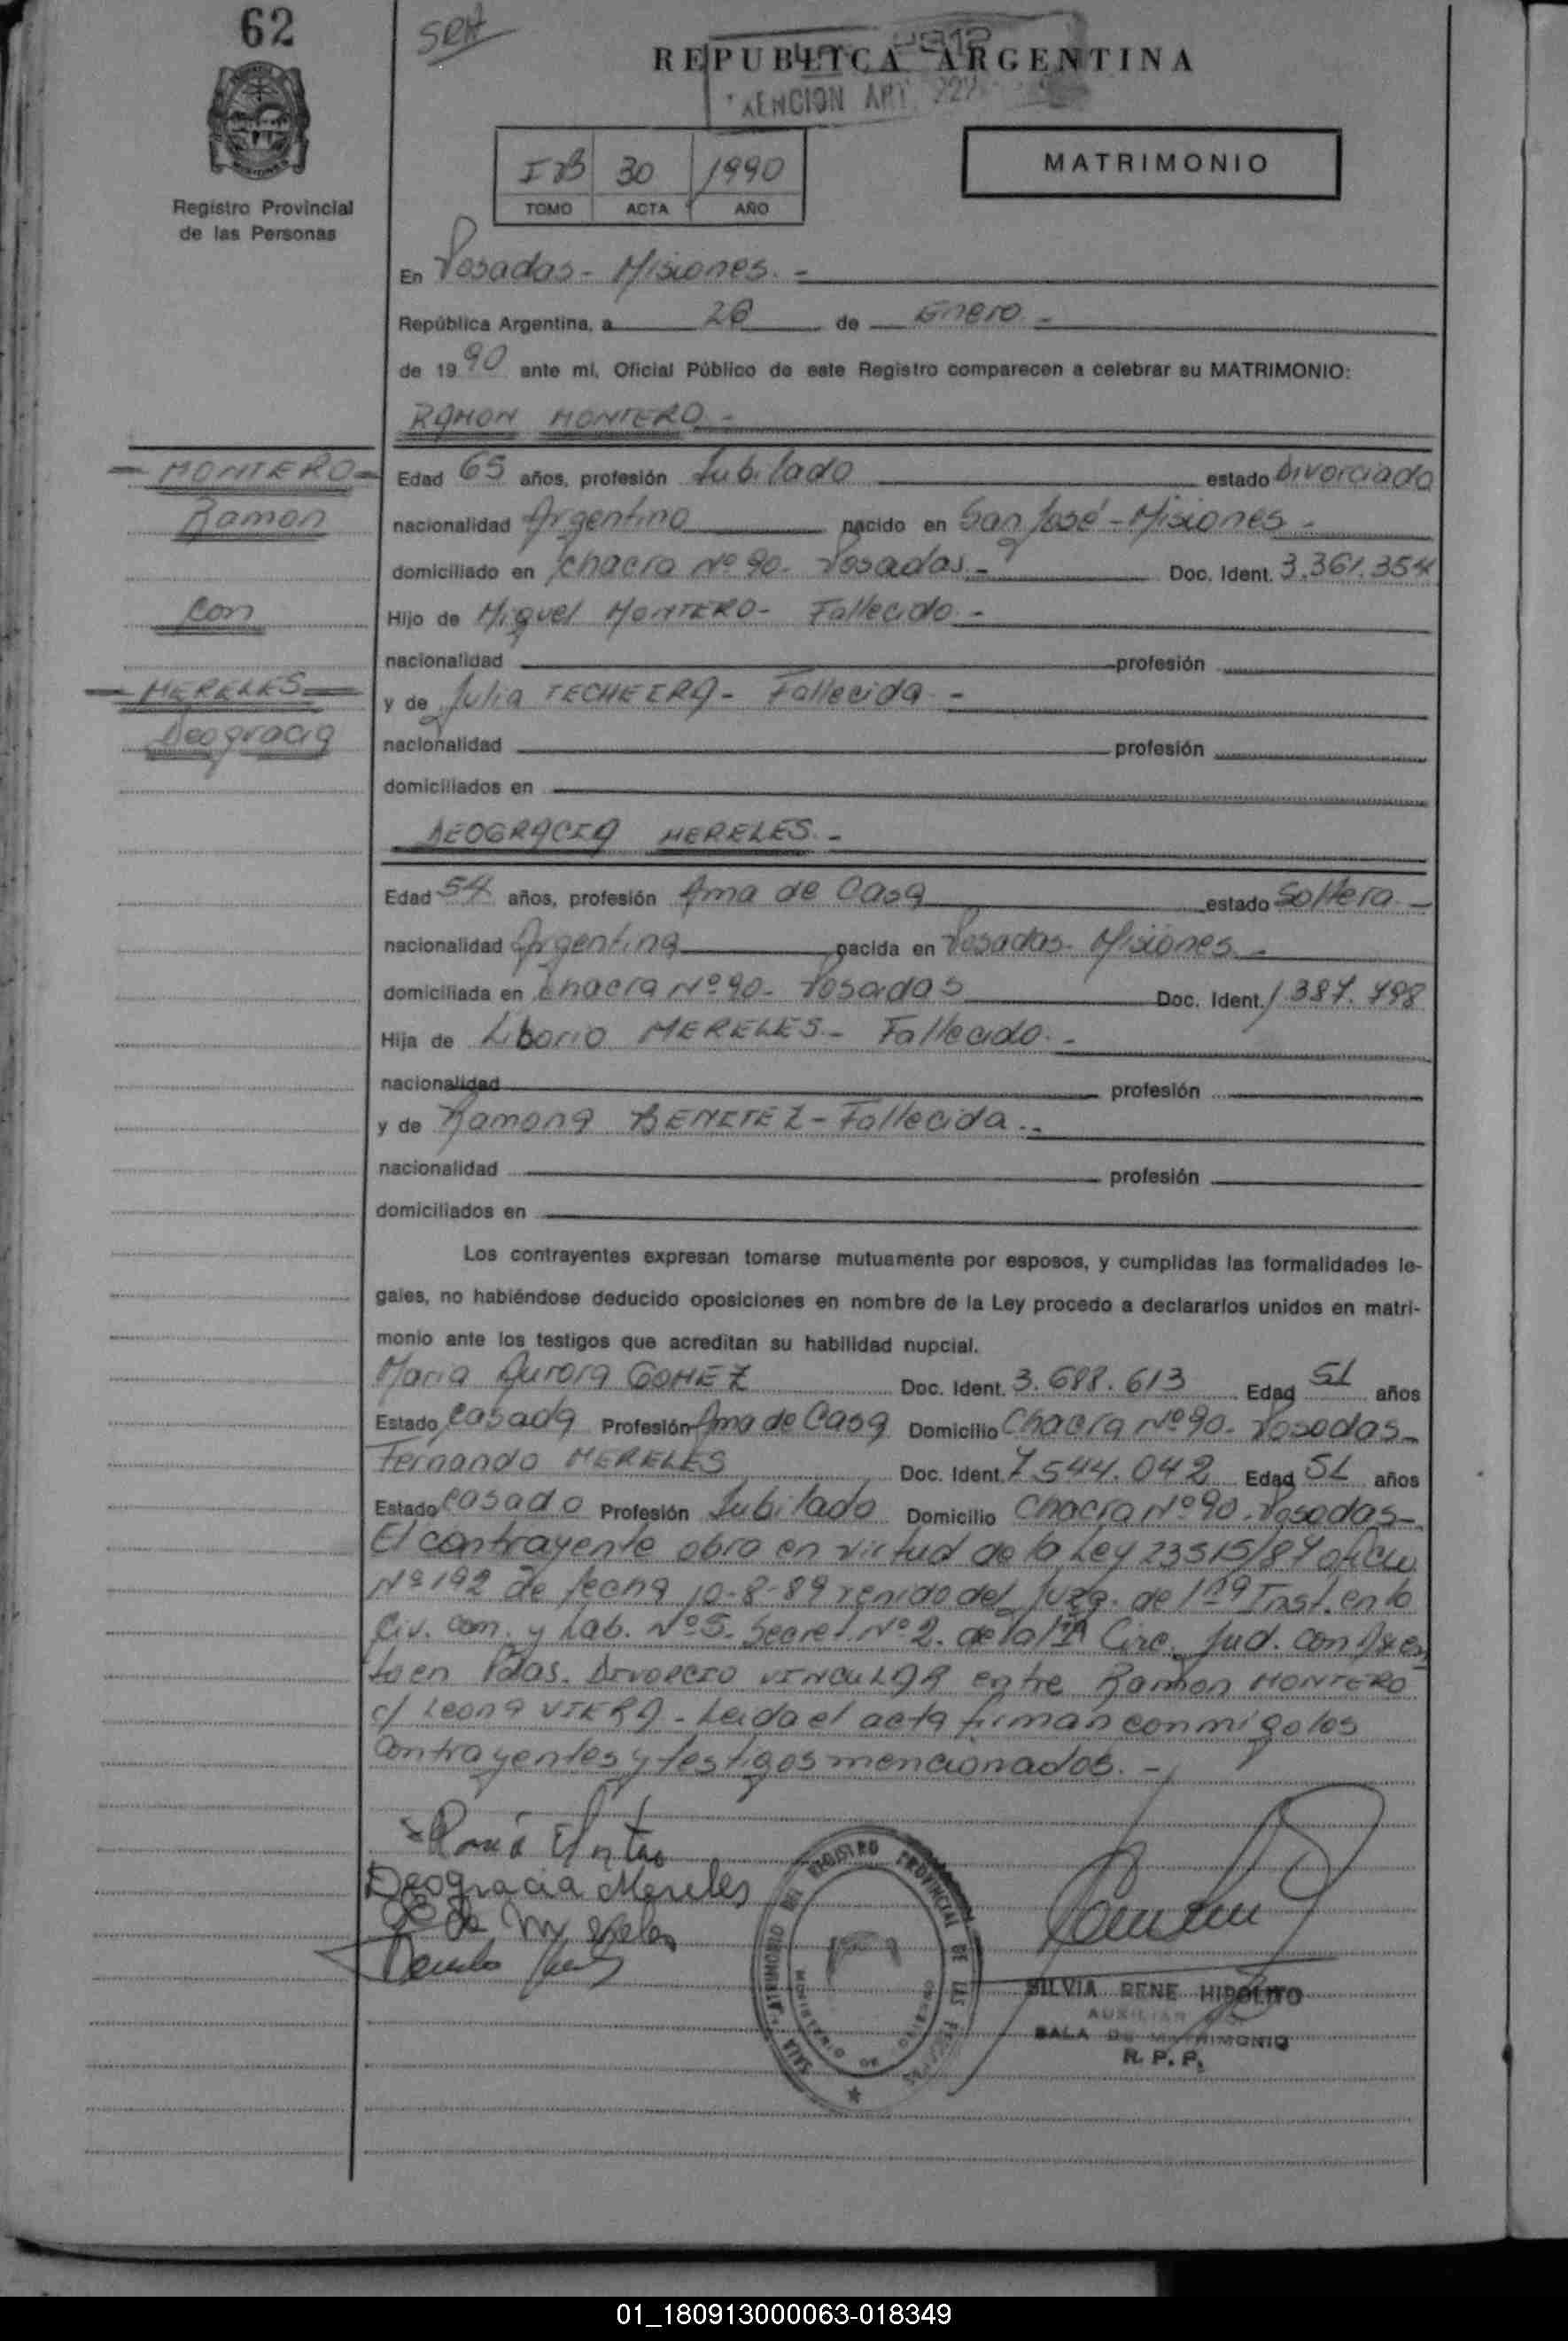 62
SRA
REPUBLICA ARGENTINA
EXENCION ART. 227
I B 30 1990
TOMO ACTA AÑO
MATRIMONIO
Registro Provincial
de las Personas
En Posadas - Misiones. -
República Argentina, a 26 de Enero -
de 1990 ante mi, Oficial Público de este Registro comparecen a celebrar su MATRIMONIO:
RAMON MONTERO -
- MONTERO -
Ramon
con
- MERELES -
Deogracia
Edad 65 años, profesión Jubilado estado Divorciado
nacionalidad Argentino nacido en San José - Misiones -
domiciliado en Chacra Nº 90 - Posadas. - Doc. Ident. 3.361.354
Hijo de Miguel MONTERO - Fallecido -
nacionalidad profesión
y de Julia TECHEIRA - Fallecida -
nacionalidad profesión
domiciliados en
DEOGRACIA MERELES. -
Edad 54 años, profesión Ama de Casa estado Soltera -
nacionalidad Argentina nacida en Posadas - Misiones. -
domiciliada en Chacra Nº 90 - Posadas Doc. Ident. 1.387.498
Hija de Liborio MERELES - Fallecido. -
nacionalidad profesión
y de Ramona BENITEZ - Fallecida. -
nacionalidad profesión
domiciliados en
Los contrayentes expresan tomarse mutuamente por esposos, y cumplidas las formalidades le-
gales, no habiéndose deducido oposiciones en nombre de la Ley procedo a declararlos unidos en matri-
monio ante los testigos que acreditan su habilidad nupcial.
Maria Aurora GOMEZ Doc. Ident. 3.688.613 Edad 51 años
Estado Casada Profesión Ama de Casa Domicilio Chacra Nº 90 - Posadas -
Fernando MERELES Doc. Ident. 7.544.042 Edad 51 años
Estado Casado Profesión Jubilado Domicilio Chacra Nº 90 - Posadas -
El contrayente obra en virtud de la Ley 23515/87 oficio
Nº 192 de fecha 10-8-89 venido del Juzg. de 1ra Inst. en lo
Civ. Com. y Lab. Nº 5. Secret. Nº 2. de la 1ª Circ. Jud. con Asien
to en Pdas. DIVORCIO VINCULAR entre Ramon MONTERO
c/ Leona VIERA - Leida el acta firman conmigo los
contrayentes y testigos mencionados. -
Deogracia Mereles
de Mereles
REGISTRO PROVINCIAL DE LAS
SALA
SILVIA RENE HIPOLITO
AUXILIAR
SALA DE MATRIMONIO
R. P. P.
01_180913000063-018349